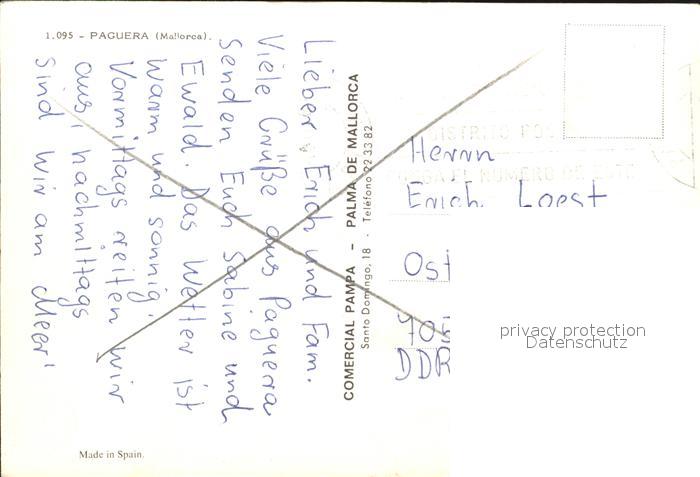 1.095 - PAGUERA (Mallorca).
Lieber Erich und Fam.
Viele Grüße aus Paguera
senden Euch Sabine und
Ewald. Das Wetter ist
warm und sonnig.
Vormittags reiten wir
aus, nachmittags
sind wir am Meer!
COMERCIAL PAMPA - PALMA DE MALLORCA
Santo Domingo, 18 - Teléfono 22 33 82
DISTRITO POS
EL NUMERO DE
Herrn
Erich Loest
Ost
70
DDR
privacy protection
Datenschutz
Made in Spain.